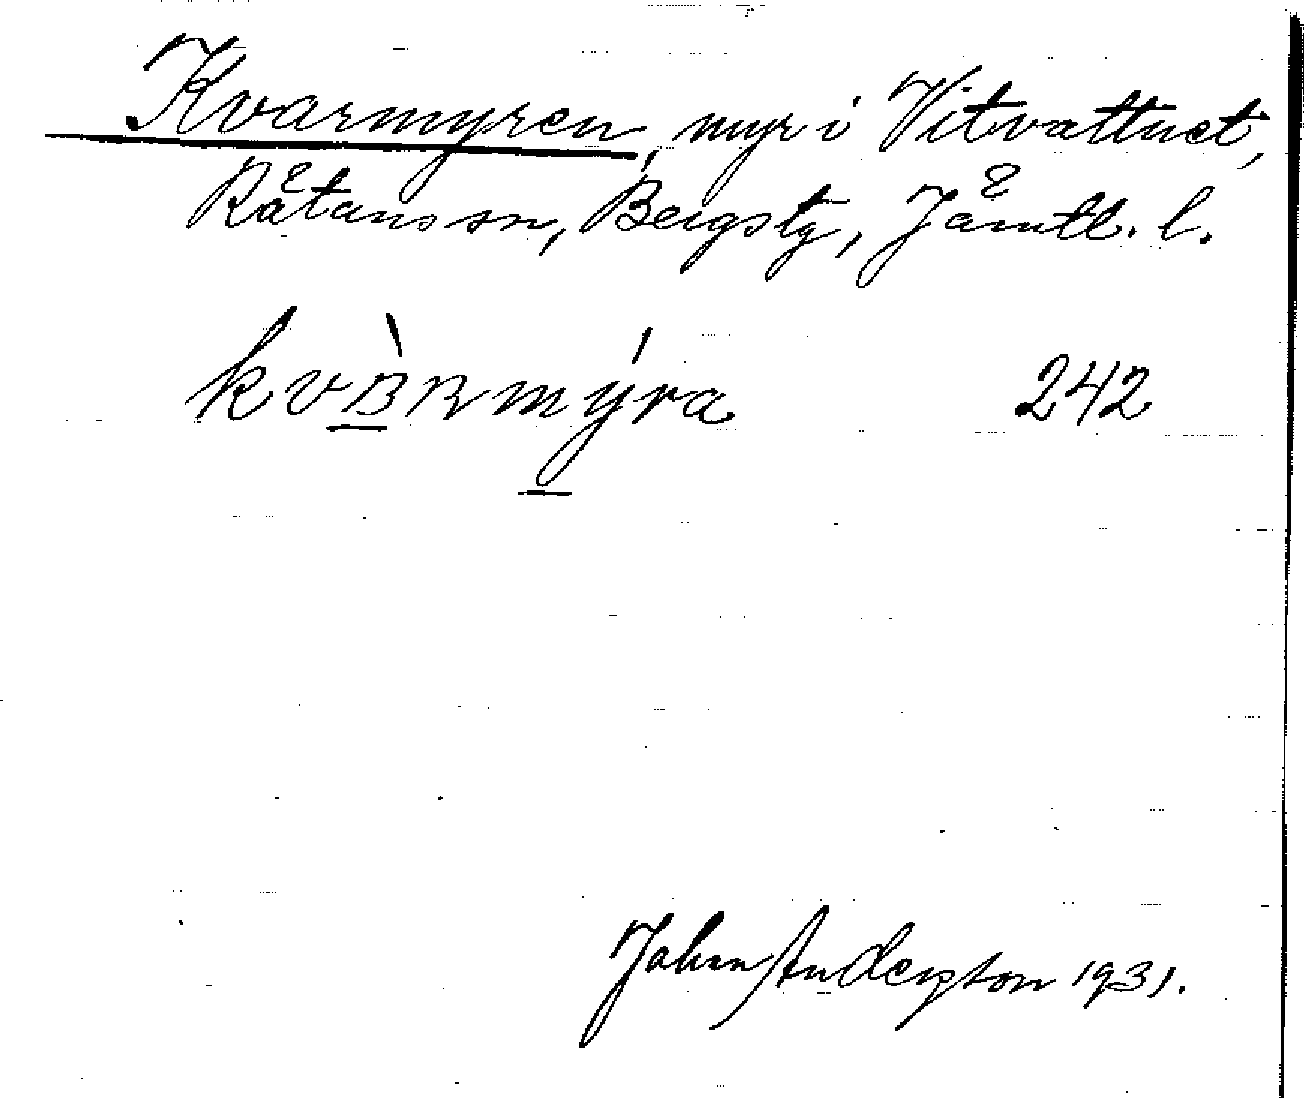 Kvarmyren, myr i Vitvattnet,
Rätans sn, Bergs tg, Jämtl. l.
kvʙ̀ʀmýra 242
Johan Anderson 1931.